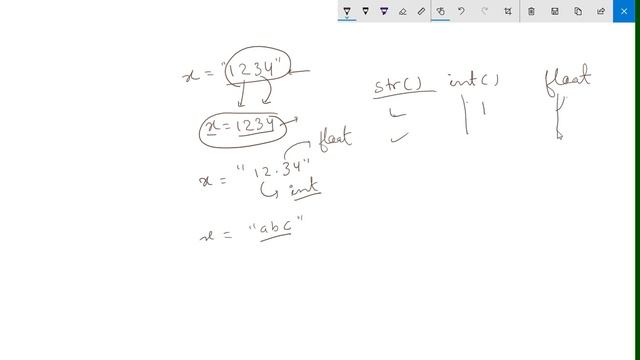 x = "1234"
x = 1234
x = "12.34" float
int
x = "abc"
str() int() float